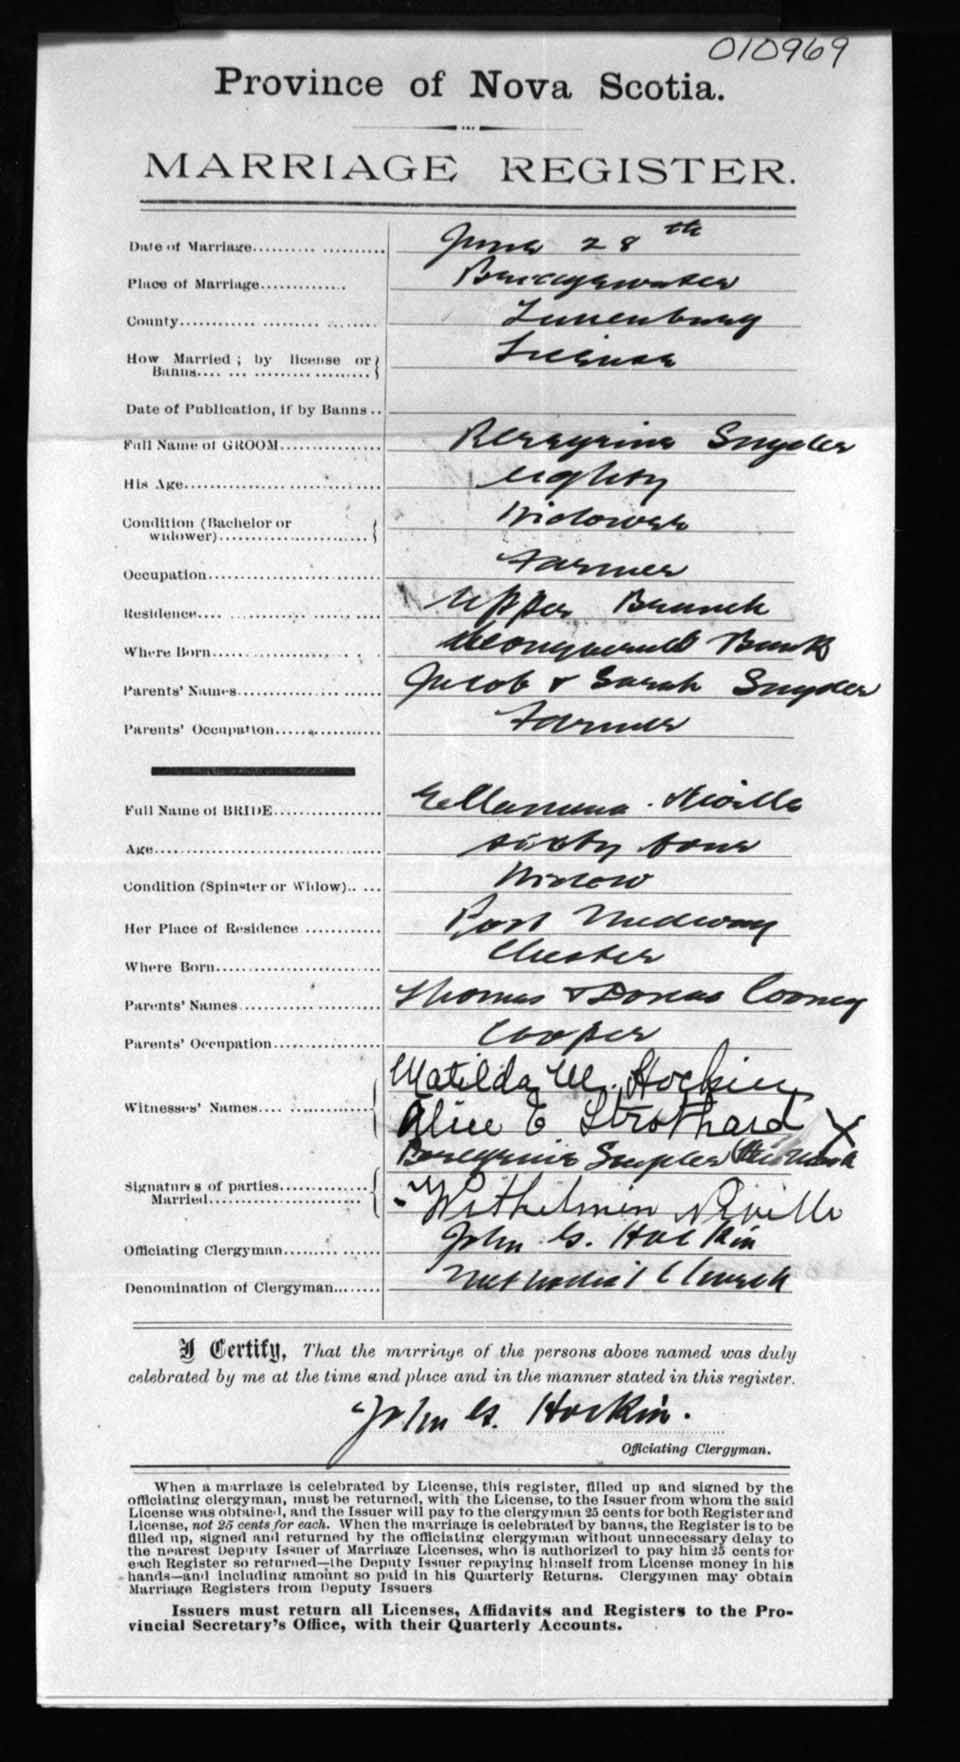 010969
Province of Nova Scotia.
MARRIAGE REGISTER.
Date of Marriage.......... June 28th
Place of Marriage............. Bridgewater
County............ Lunenburg
How Married; by license or Banns.... License
Date of Publication, if by Banns..
Full Name of GROOM................ Peregrine Snyder
His Age.......... eighty
Condition (Bachelor or widower)....... Widower
Occupation.......... Farmer
Residence.... Upper Branch
Where Born.......... Banks
Parents' Names.......... Jacob & Sarah Snyder
Parents' Occupation.......... Farmer
Full Name of BRIDE................ Neville
Age.......... sixty four
Condition (Spinster or Widow)..... Widow
Her Place of Residence ............ Port Medway
Where Born.......... Chester
Parents' Names.......... Thomas & Dorcas Cooney
Parents' Occupation.......... Cooper
Matilda M. Hockin
Witnesses' Names.... Alice E Strothard X
Snyder His Mark
Signatures of parties Married.......... Wilhelmin Neville
Officiating Clergyman.......... John G. Hockin
Denomination of Clergyman........ Methodist Church
I Certify, That the marriage of the persons above named was duly
celebrated by me at the time and place and in the manner stated in this register.
John G. Hockin.
Officiating Clergyman.
When a marriage is celebrated by License, this register, filled up and signed by the
officiating clergyman, must be returned, with the License, to the Issuer from whom the said
License was obtained, and the Issuer will pay to the clergyman 25 cents for both Register and
License, not 25 cents for each. When the marriage is celebrated by banns, the Register is to be
filled up, signed and returned by the officiating clergyman without unnecessary delay to
the nearest Deputy Issuer of Marriage Licenses, who is authorized to pay him 25 cents for
each Register so returned—the Deputy Issuer repaying himself from License money in his
hands—and including amount so paid in his Quarterly Returns. Clergymen may obtain
Marriage Registers from Deputy Issuers
Issuers must return all Licenses, Affidavits and Registers to the Pro-
vincial Secretary's Office, with their Quarterly Accounts.